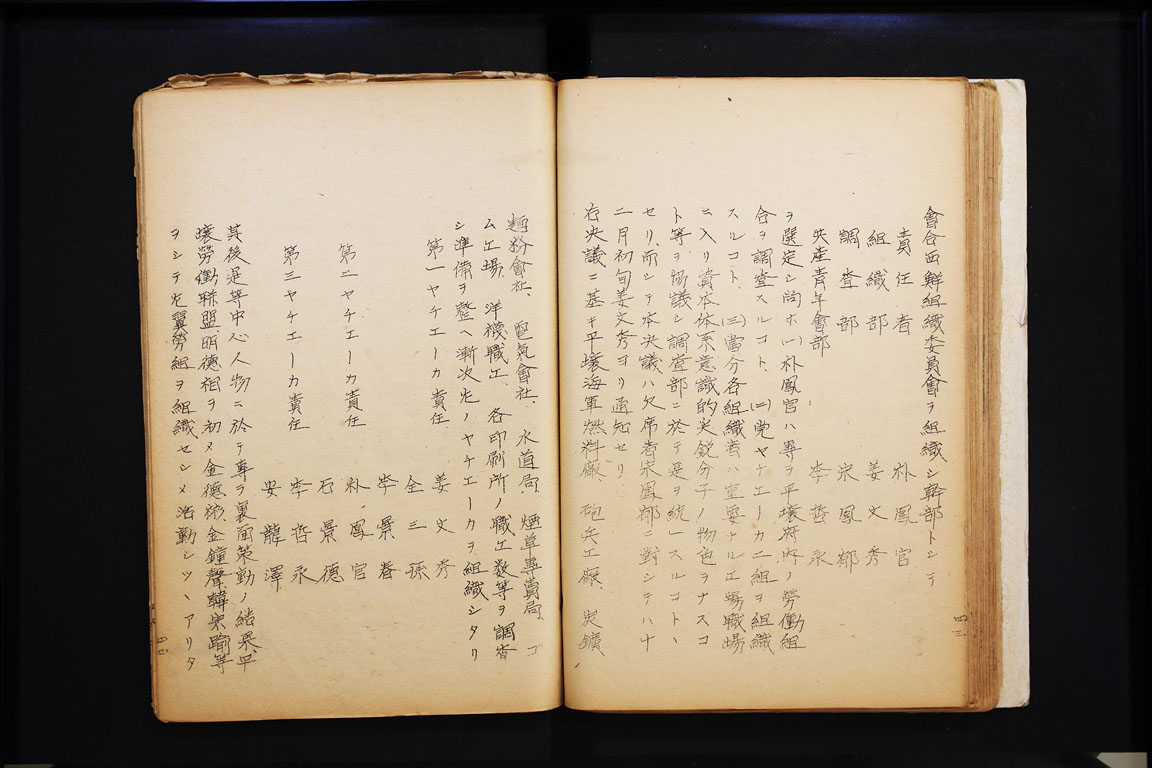 會合西鮮組織委員會ヲ組織シ幹部トシテ
責任者 朴鳳官
組織部 姜文秀
調査部 宋鳳郁
共産青年會部 李哲永
ヲ選定シ尚ホ(一)朴鳳官ハ專ラ平壤府内ノ勞働組
合ヲ調査スルコト、(二)党ヤチエーカ二組ヲ組織
スルコト、(三)當分各組織者ハ重要ナル工場職場
ニ入リ資本体系意識的尖鋭分子ノ物色ヲナスコ
ト等ヲ協議シ調査部ニ於テ是ヲ統一スルコトヽ
セリ、而シテ本决議ハ欠席者宋鳳郁ニ對シテハ十
二月初旬姜文秀ヨリ通知セリ
右决議ニ基キ平壤海軍燃料廠、砲兵工廠、炭鑛
四三
麺粉會社、電氣會社、水道局、煙草專賣局、コ
ム工場、洋襪職工、各印刷所ノ職工数等ヲ調査
シ準備ヲ整ヘ漸次左ノヤチエーカヲ組織シタリ
第一ヤチエーカ責任 姜文秀
金三孫
李景春
第二ヤチエーカ責任 朴鳳官
石景德
第三ヤチエーカ責任 李哲永
安龍澤
其後是等中心人物ニ於テ專ラ裏面策動ノ結果平
壤勞働聯盟、明德相ヲ初メ金德 金鐘聲韓 等
ヲシテ左翼勞組ヲ組織セシメ活動シツヽアリタ
四四